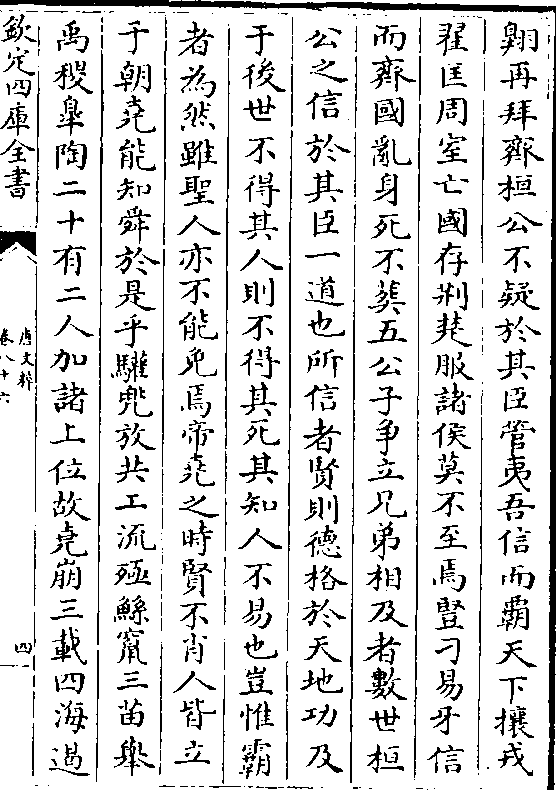 翱再拜齊桓公不疑於其臣管夷吾信而霸天下攘戎
翟匡周室亡國存荆楚服諸侯莫不至焉豎刁易牙信
而齊國亂身死不葬五公子争立兄弟相及者數世桓
公之信於其臣一道也所信者賢則德格於天地功及
于後世不得其人則不得其死其知人不易也豈惟霸
者為然雖聖人亦不能免焉帝堯之時賢不肖人皆立
于朝堯能知舜於是乎驩兜放共工流殛鯀竄三苗舉
禹稷皋陶二十有二人加諸上位故堯崩三載四海遏
欽定四庫全書
唐文粹
卷八十六
四